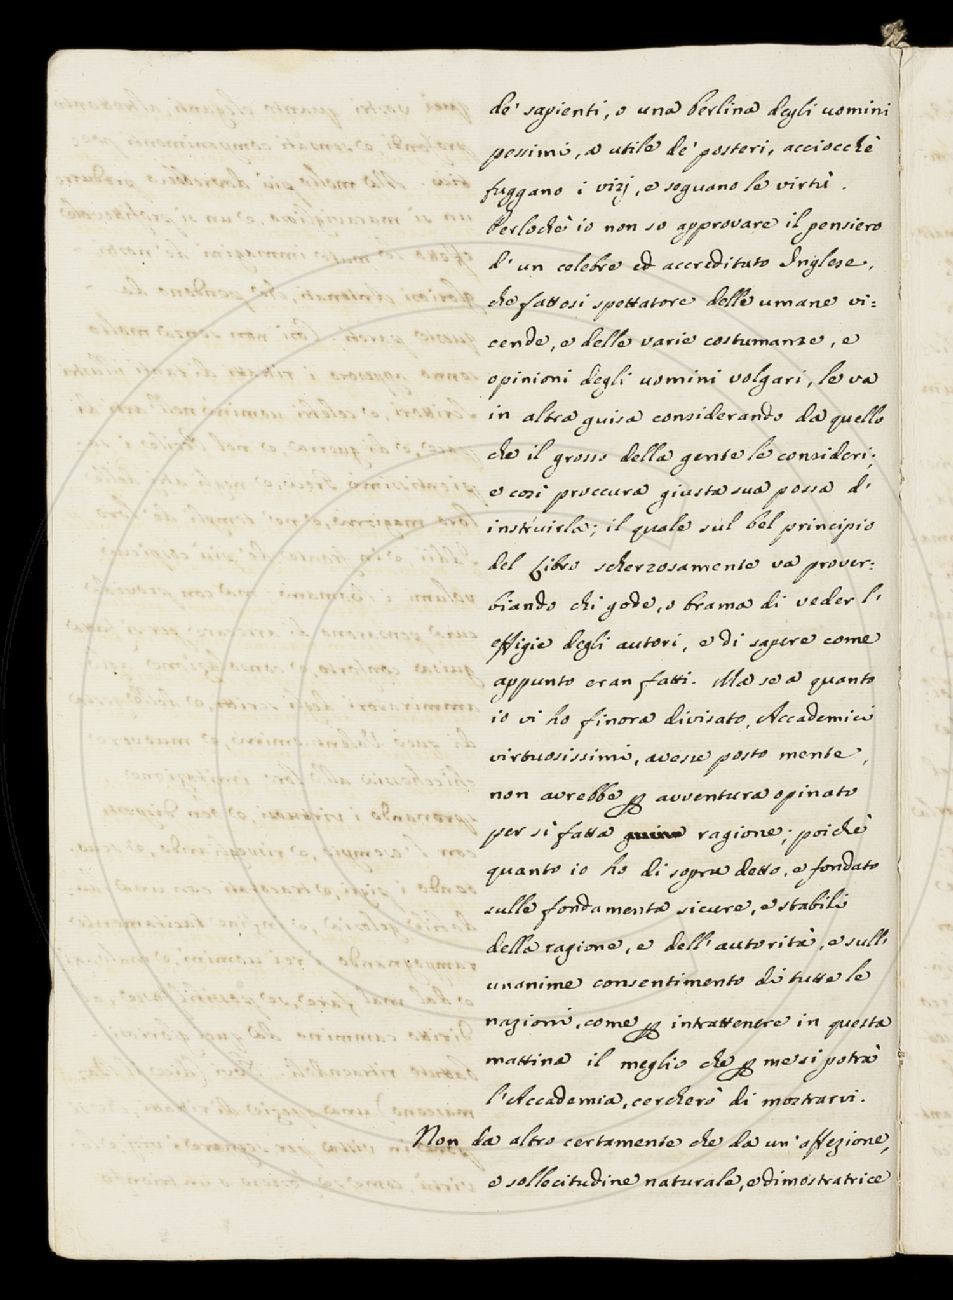 de' sapienti, o una berlina degli uomini
pessimi, a utile de' posteri, acciocchè
fuggano i vizj, e seguano le virtù.
Perlochè io non so approvare il pensiero
d'un celebre ed accreditato Inglese,
che fattosi spettatore delle umane vi=
cende, e delle varie costumanze, e
opinioni degli uomini volgari, le va
in altra guisa considerando da quello
che il grosso della gente le consideri;
e così proccura giusta sua possa d'
instruirla; il quale sul bel principio
del Libro scherzosamente va prover=
biando chi gode, o brama di veder l'
effigie degli autori, e di sapere come
appunto eran fatti. Ma se a quanto
io vi ho finora divisato, Accademici
virtuosissimi, avesse posto mente,
non avrebbe p avventura opinato
per sì fatta ragione; poichè
quanto io ho di sopra detto, e fondato
sulle fondamenta sicure, e stabili
della ragione, e dell'autorità, e sull'
unanime consentimento di tutte le
nazioni, come p intrattenere in questa
mattina il meglio che p me si potrà
l'Accademia, cercherò di mostrarvi.
Non da altro certamente che da un'affezione,
e sollecitudine naturale, e dimostratrice